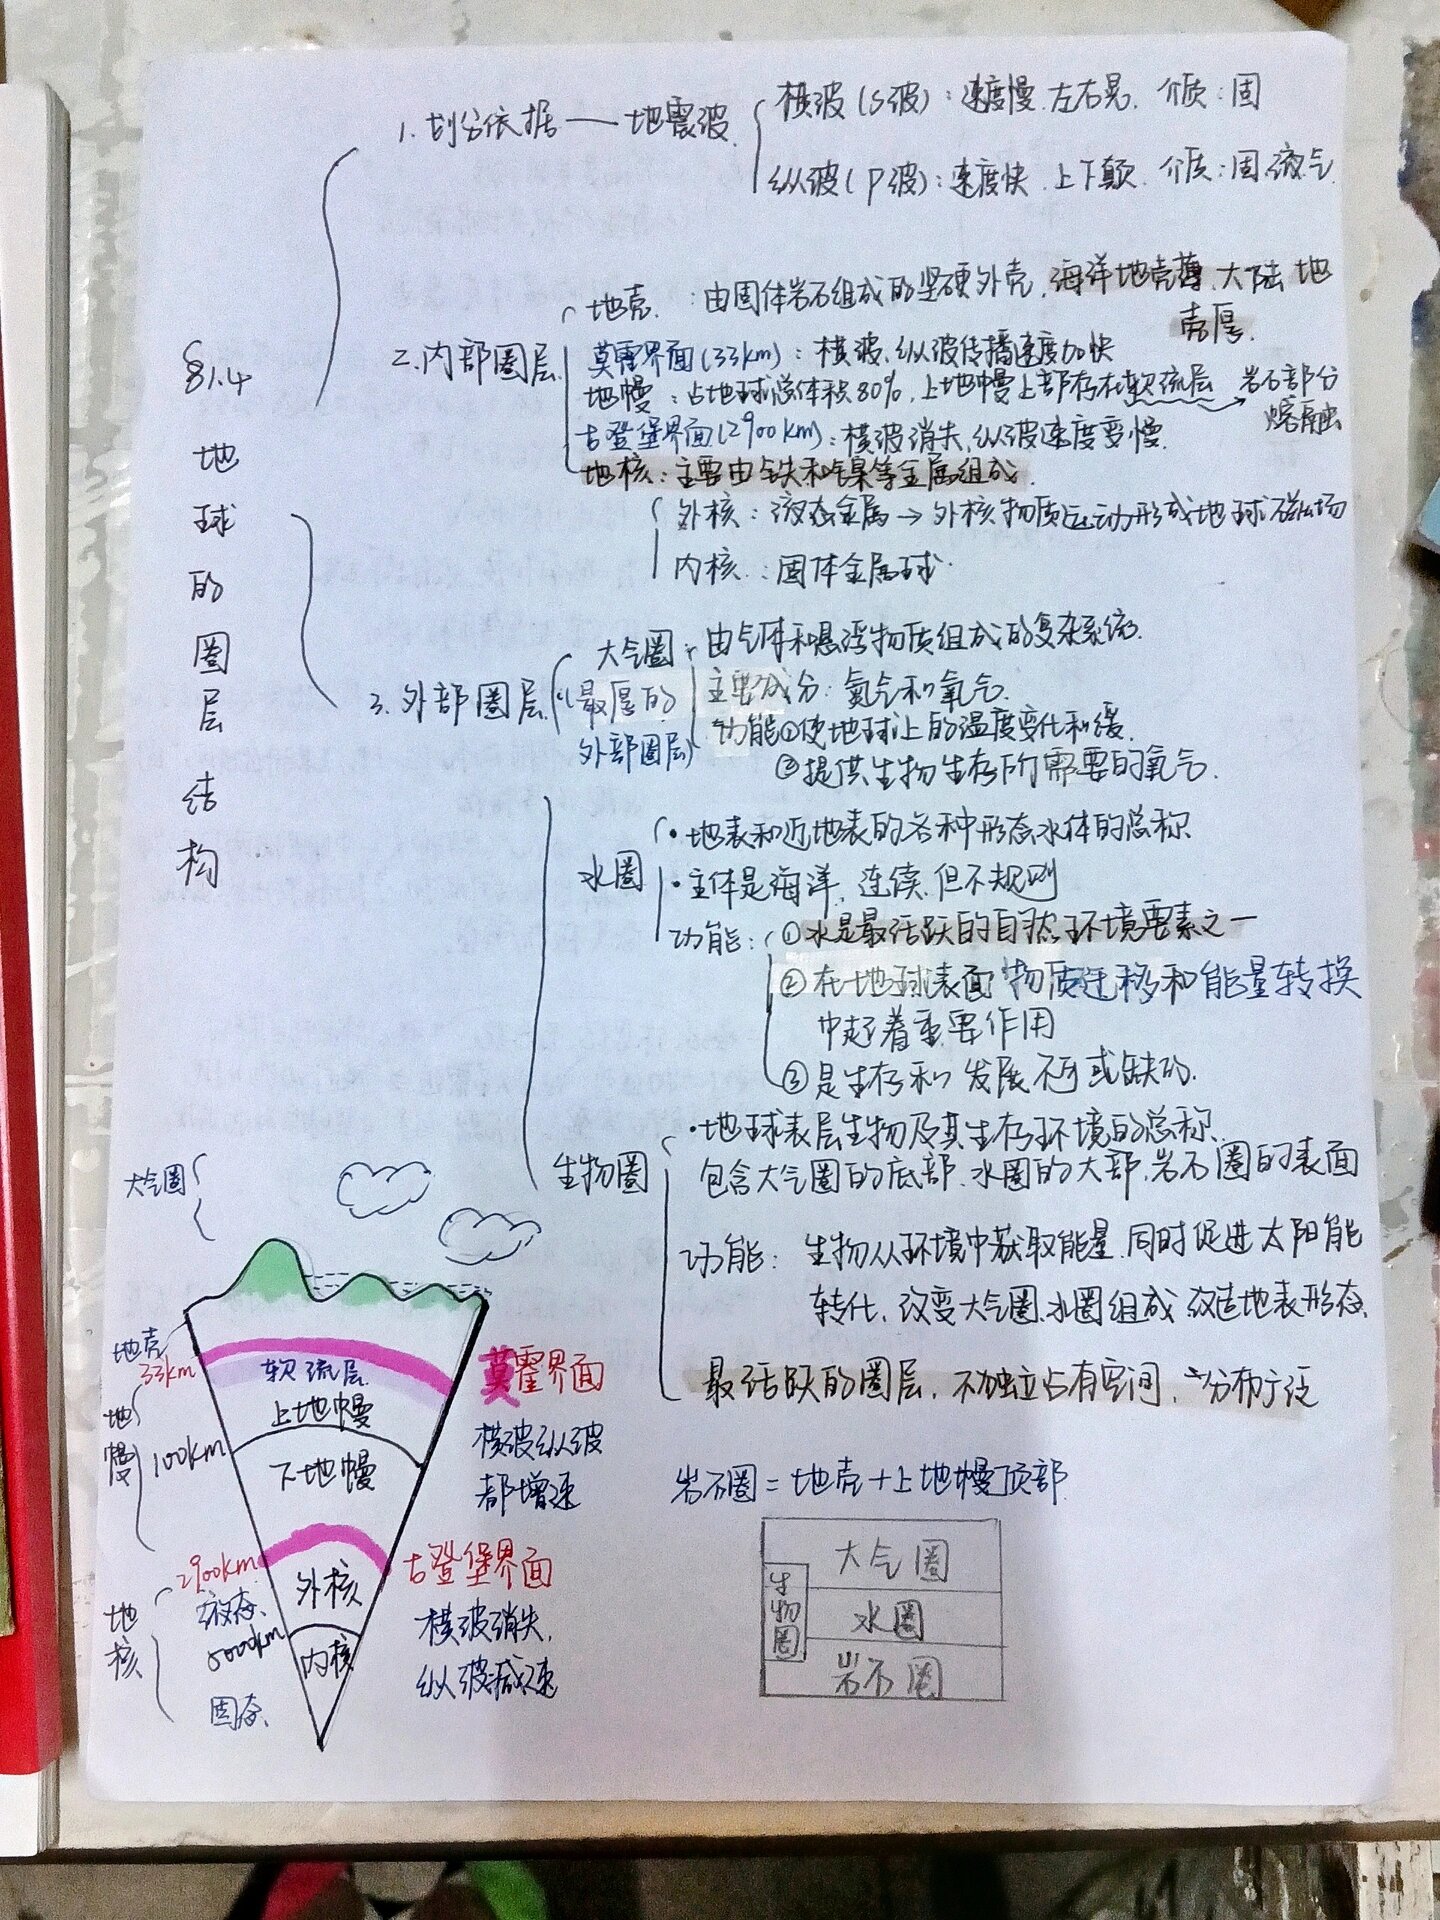 §1.4 地球的圈层结构
1. 划分依据——地震波
横波(S波)：速度慢.左右晃. 介质：固
纵波(P波)：速度快.上下颠. 介质：固液气.
2.内部圈层
地壳：由固体岩石组成的坚硬外壳.海洋地壳薄.大陆地
壳厚.
莫霍界面(33km)：横波、纵波传播速度加快
地幔：占地球总体积80%，上地幔上部存在软流层→岩石部分
熔融
古登堡界面(2900km)：横波消失,纵波速度变慢.
地核：主要由铁和镍等金属组成.
外核：液态金属→外核物质运动形成地球磁场
内核：固体金属球.
3.外部圈层
大气圈
(最厚的
外部圈层)
由气体和悬浮物质组成的复杂系统.
主要成分：氮气和氧气.
功能①使地球上的温度变化和缓.
②提供生物生存所需要的氧气.
水圈
·地表和近地表的各种形态水体的总称
·主体是海洋，连续.但不规则
功能：①水是最活跃的自然环境要素之一
②在地球表面物质迁移和能量转换
中起着重要作用
③是生存和发展不可或缺的.
生物圈
·地球表层生物及其生存环境的总称.
包含大气圈的底部.水圈的大部.岩石圈的表面
功能：生物从环境中获取能量.同时促进太阳能
转化，改变大气圈.水圈组成 改造地表形态.
最活跃的圈层，不独立占有空间，分布广泛
大气圈
地壳
33km
软流层
上地幔
莫霍界面
横波纵波
都增速
地幔
100km
下地幔
2900km
古登堡界面
横波消失,
纵波减速
地核
液态.
外核
5000km
内核
固态.
岩石圈=地壳+上地幔顶部
大气圈
生物圈
水圈
岩石圈